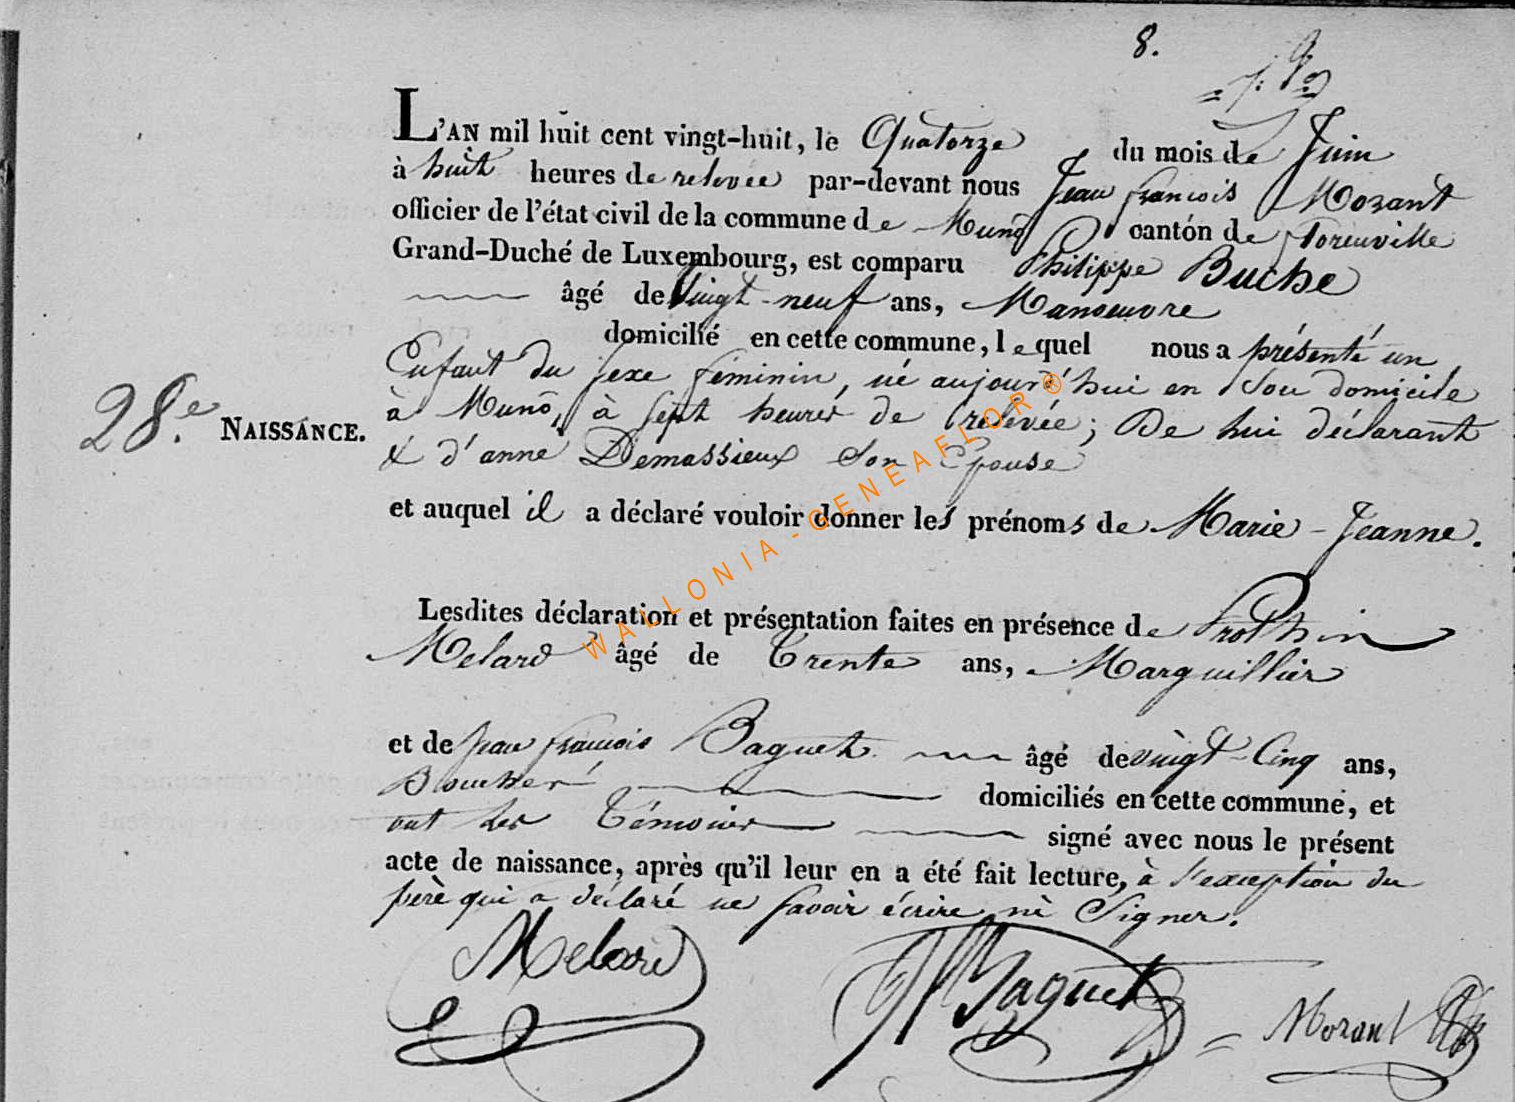 8.
L'AN mil huit cent vingt-huit, le Quatorze du mois de Juin
à huit heures de relevée par-devant nous Jean françois Morant
officier de l'état civil de la commune de Muno canton de florenville
Grand-Duché de Luxembourg, est comparu Philippe Buche
âgé de Vingt-neuf ans, Manoeuvre
domicilié en cette commune, lequel nous a présenté un
Enfant du sexe féminin, né aujourd'hui en Son domicile
à Muno, à Sept heures de relevée; De lui déclarant
& d'anne Demassieux Son Epouse
28.e NAISSANCE.
et auquel il a déclaré vouloir donner les prénoms de Marie-Jeanne.
Lesdites déclaration et présentation faites en présence de Prothin
Melard âgé de Trente ans, Marguillier
et de jean françois Baguet âgé de vingt-Cinq ans,
Boucher domiciliés en cette commune, et
ont les Témoins signé avec nous le présent
acte de naissance, après qu'il leur en a été fait lecture, à l'exception du
père qui a déclaré ne savoir écrire ni Signer.
Melard Baguet Morant
WALLONIA - GENEAFLOR ®